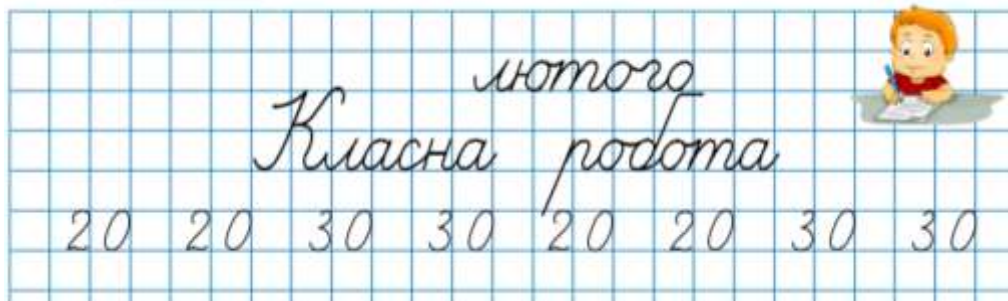 лютого
Класна робота
20 20 30 30 20 20 30 30